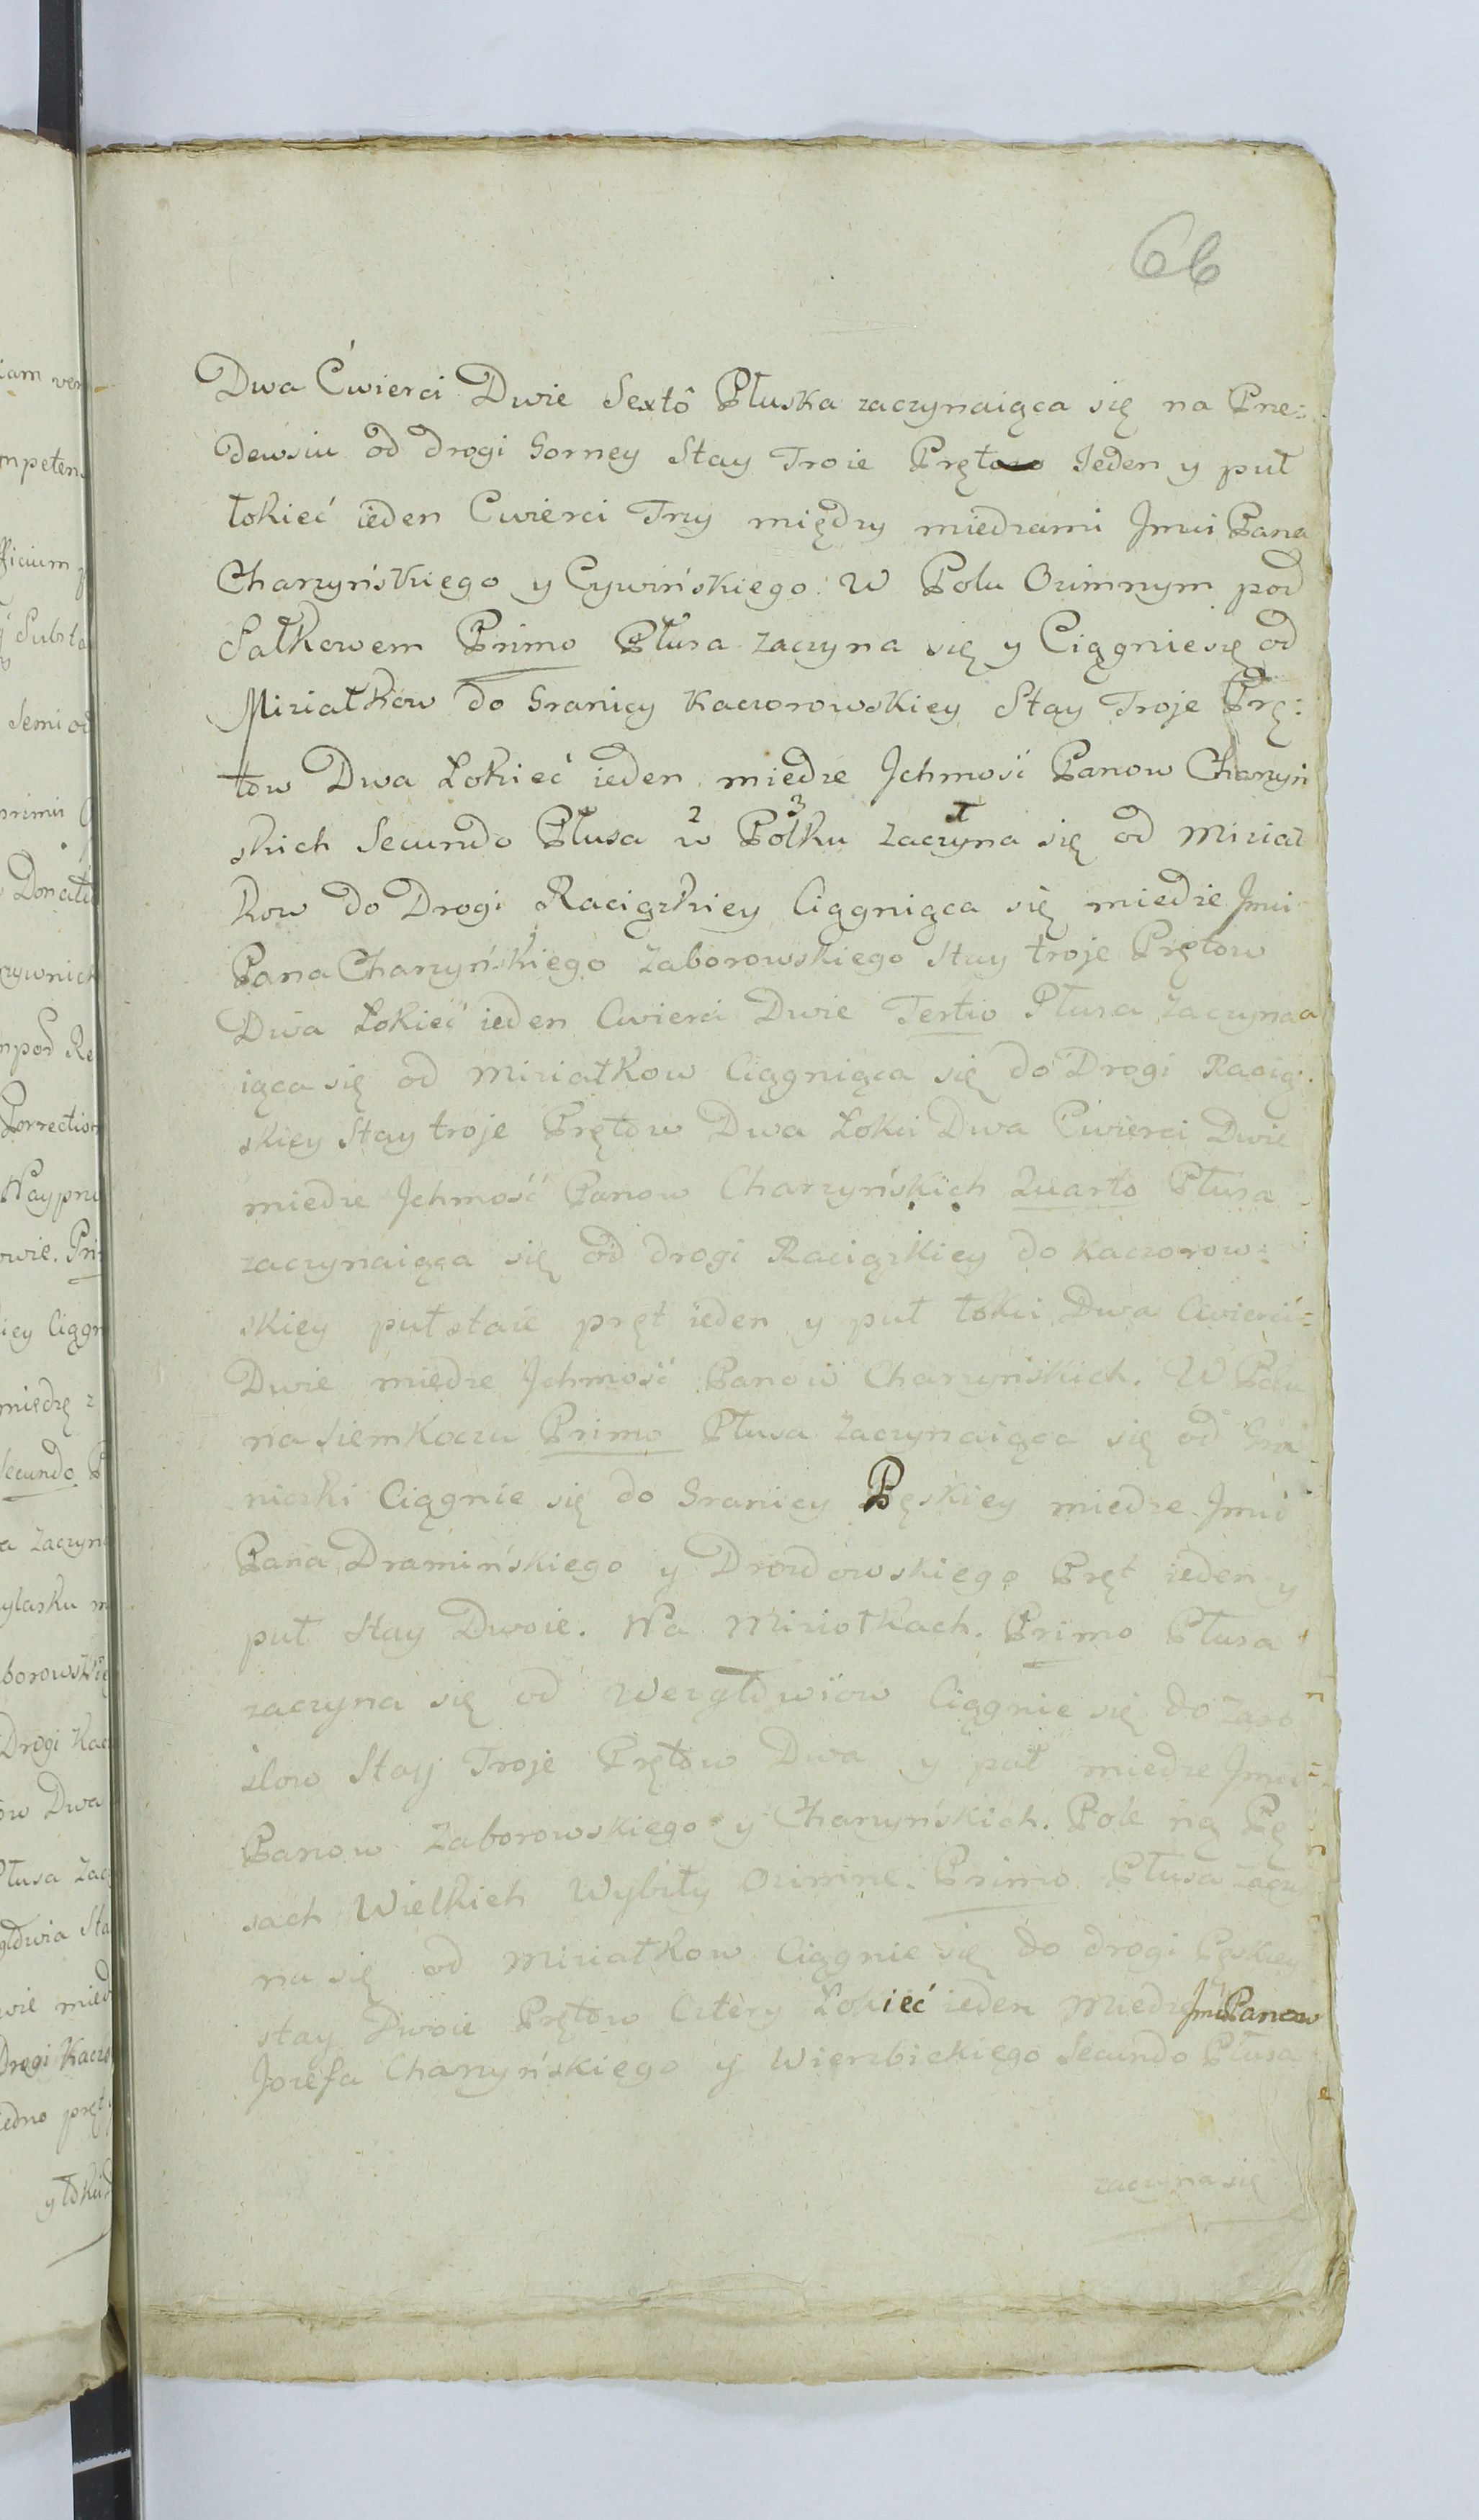 66
Dwa Ćwierci Dwie Sextô Płuska zaczynaiąca się na Prze=
dewsiu od drogi Gorney Stay Troie Pręt Jeden y puł
łokieć ieden Cwierci Trzy między miedzami Jmci Pana
Charzyńskiego y Cywińskiego. W Polu Ozimnym pod
Sałkowem Primo Płusa zaczyna się y Ciągnie się od
Miziałkow do Granicy Kaczorowskiey Stay Troje Prę:
tow Dwa Łokieć ieden miedze Jchmość Panow Charzyń
skich Secundo Płusa w Polku zaczyna się od Miział
kow do Drogi Raciązkiey Ciągniąca się miedze Jmci
Pana Charzyńskiego Zaborowskiego Stay troje Prętow
Dwa Łokieć ieden Cwierci Dwie Tertio Płusa Zaczyna
iąca się od Miziałkow Ciągniąca się do Drogi Raciąz
skiey Stay troje Prętow Dwa Łokci Dwa Ćwierci Dwie
miedze Jchmość Panow Charzyńskich Quarto Płusa
zaczynaiąca się od drogi Raciązkiey do Kaczorow=
skiey puł staie pręt ieden y puł łokci Dwa Cwierci=
Dwie miedze Jchmość Panow Charzyńskich. W Polu
na Siemkoczu Primo Płusa Zaczynaiąca się od Gra
niczki Ciągnie się do Granicy Pęskiey miedze Jmci
Pana Dramińskiego y Drozdowskiego Pręt ieden y
puł Stay Dwoie. Na Miziołkach. Primo Płusa
zaczyna się od Wezgłowiow Ciągnie się do Zaro
slow Stay Troje Prętow Dwa y puł miedze Jmci=
Panow Zaborowskiego y Charzyńskich. Pole na Pę
sach Wielkich Wybiły Ozimne. Primo Płusa Zaczy
na się od Miziałkow Ciągnie się do drogi Pęskiey
stay Dwoie Prętow Cztery Łokieć ieden Miedze Jmci Panow
Jozefa Charzyńskiego y Wierzbickiego Secundo Płusa
zaczyna się